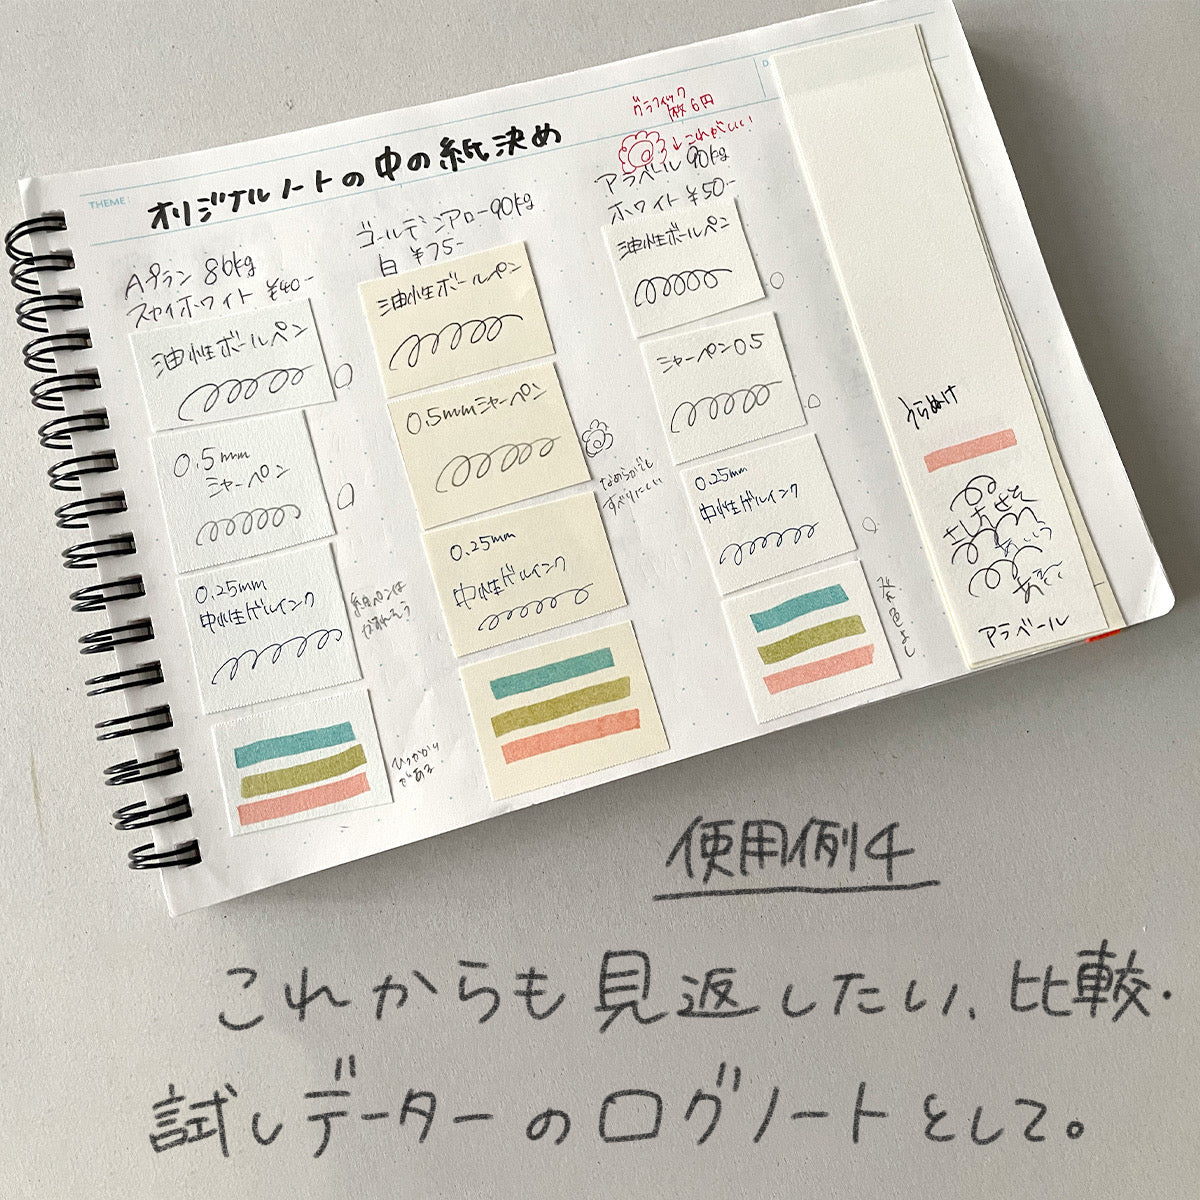 THEME:
オリジナルノートの中の紙決め
グラフィック
1枚6円
↓これがいい!
Aプラン 86kg
スカイホワイト ¥40-
油性ボールペン
0.5mm
シャーペン
0.25mm
中性ゲルインク
ひっかかり
がある
ゴールデンアロー90kg
白 ¥75-
油性ボールペン
0.5mmシャーペン
0.25mm
中性ゲルインク
なめらかでも
すべりにくい
アラベール 90kg
ホワイト ¥50-
油性ボールペン
シャーペン0.5
0.25mm
中性ゲルインク
発色よし
うらぬけ
アラベール
使用例4
これからも見返したい、比較・
試しデーターのログノートとして。